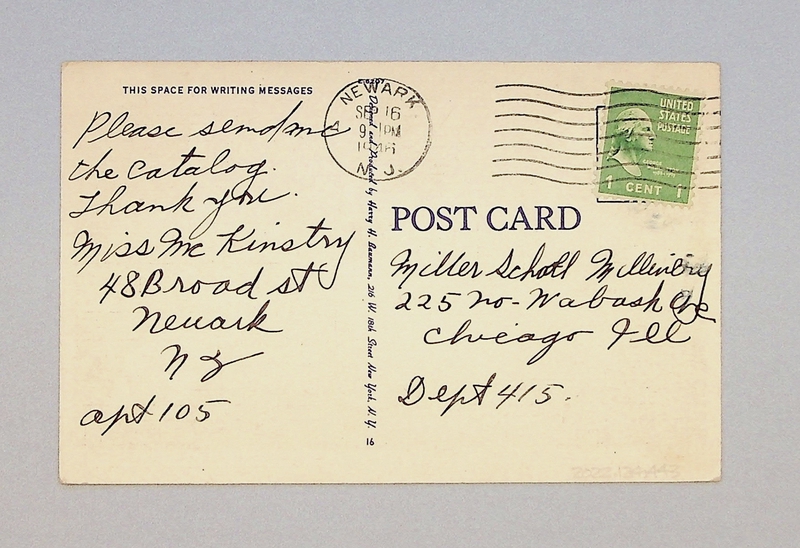 THIS SPACE FOR WRITING MESSAGES
Please send me
the catalog.
Thank you.
Miss McKinstry
48 Broad st
Newark
NJ
apt 105
NEWARK
SEP 16
9 - PM
1946
N. J.
Designed and Produced by Harry H. Baumann, 216 W. 18th Street New York, N. Y.
16
UNITED
STATES
POSTAGE
1 CENT 1
POST CARD
Miller Schott Millinery
225 no - Wabash Ave
Chicago Ill
Dept 415.